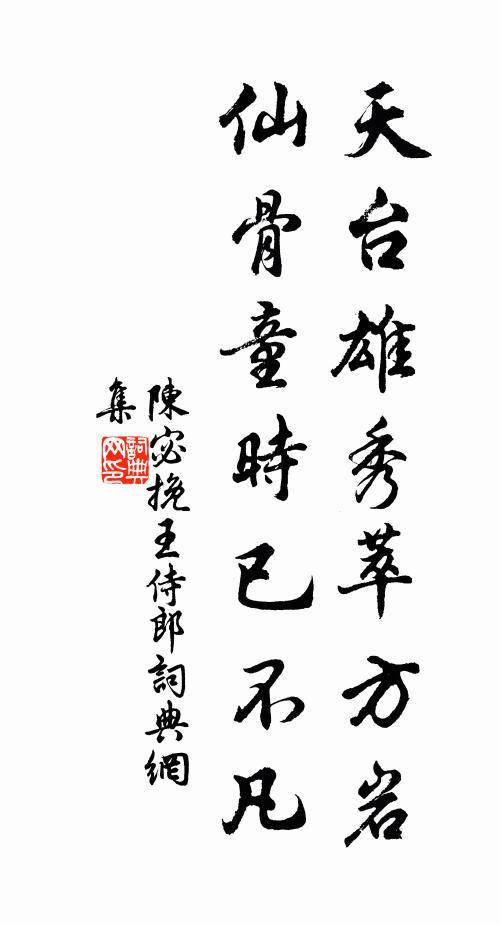 天台雄秀萃方岩
仙骨童時已不凡
陳宓挽王侍郎詞典網
集
詞典網印